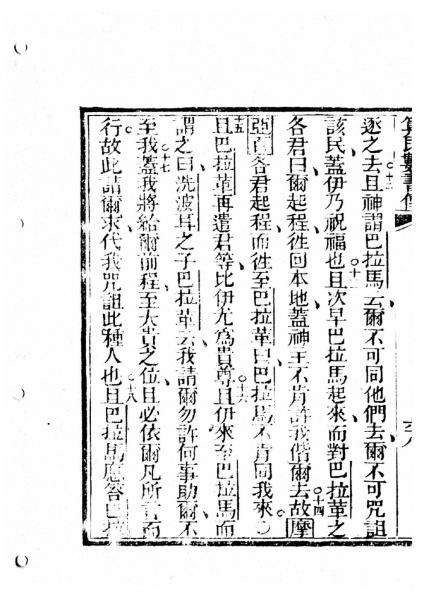 算民數書傳
逐之去○十二且神謂巴拉馬云爾不可同他們去爾不可咒詛
該民蓋伊乃祝福也○十三且次早巴拉馬起來而對巴拉革之
各君曰爾起程徃回本地蓋神王不肯許我偕爾去○十四故摩
亞百各君起程而徃至巴拉革曰巴拉馬不肯同我來○
十五且巴拉革再遣君等比伊尤爲貴尊○十六且伊來至巴拉馬而
謂之曰洗波耳之子巴拉革云我請爾勿許何事助爾不
至我○十七蓋我將給爾前程至大貴之位且必依爾凡所言而
行故此請爾求代我咒詛此種人也○十八且巴拉馬應答巴